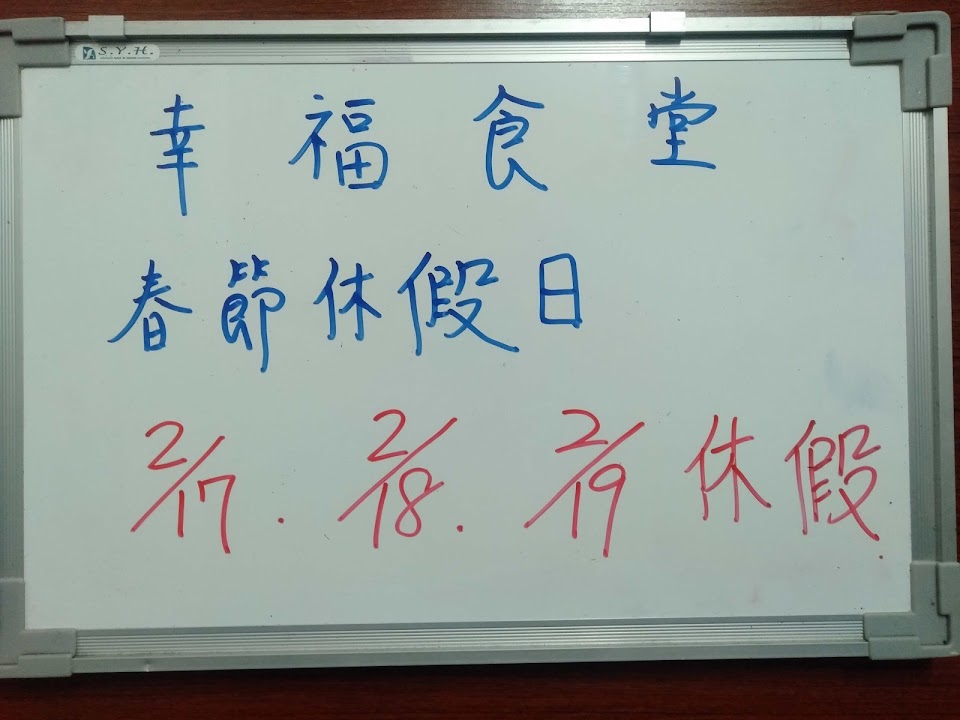 S.Y.H.
幸福食堂
春節休假日
2/17. 2/18. 2/19 休假.